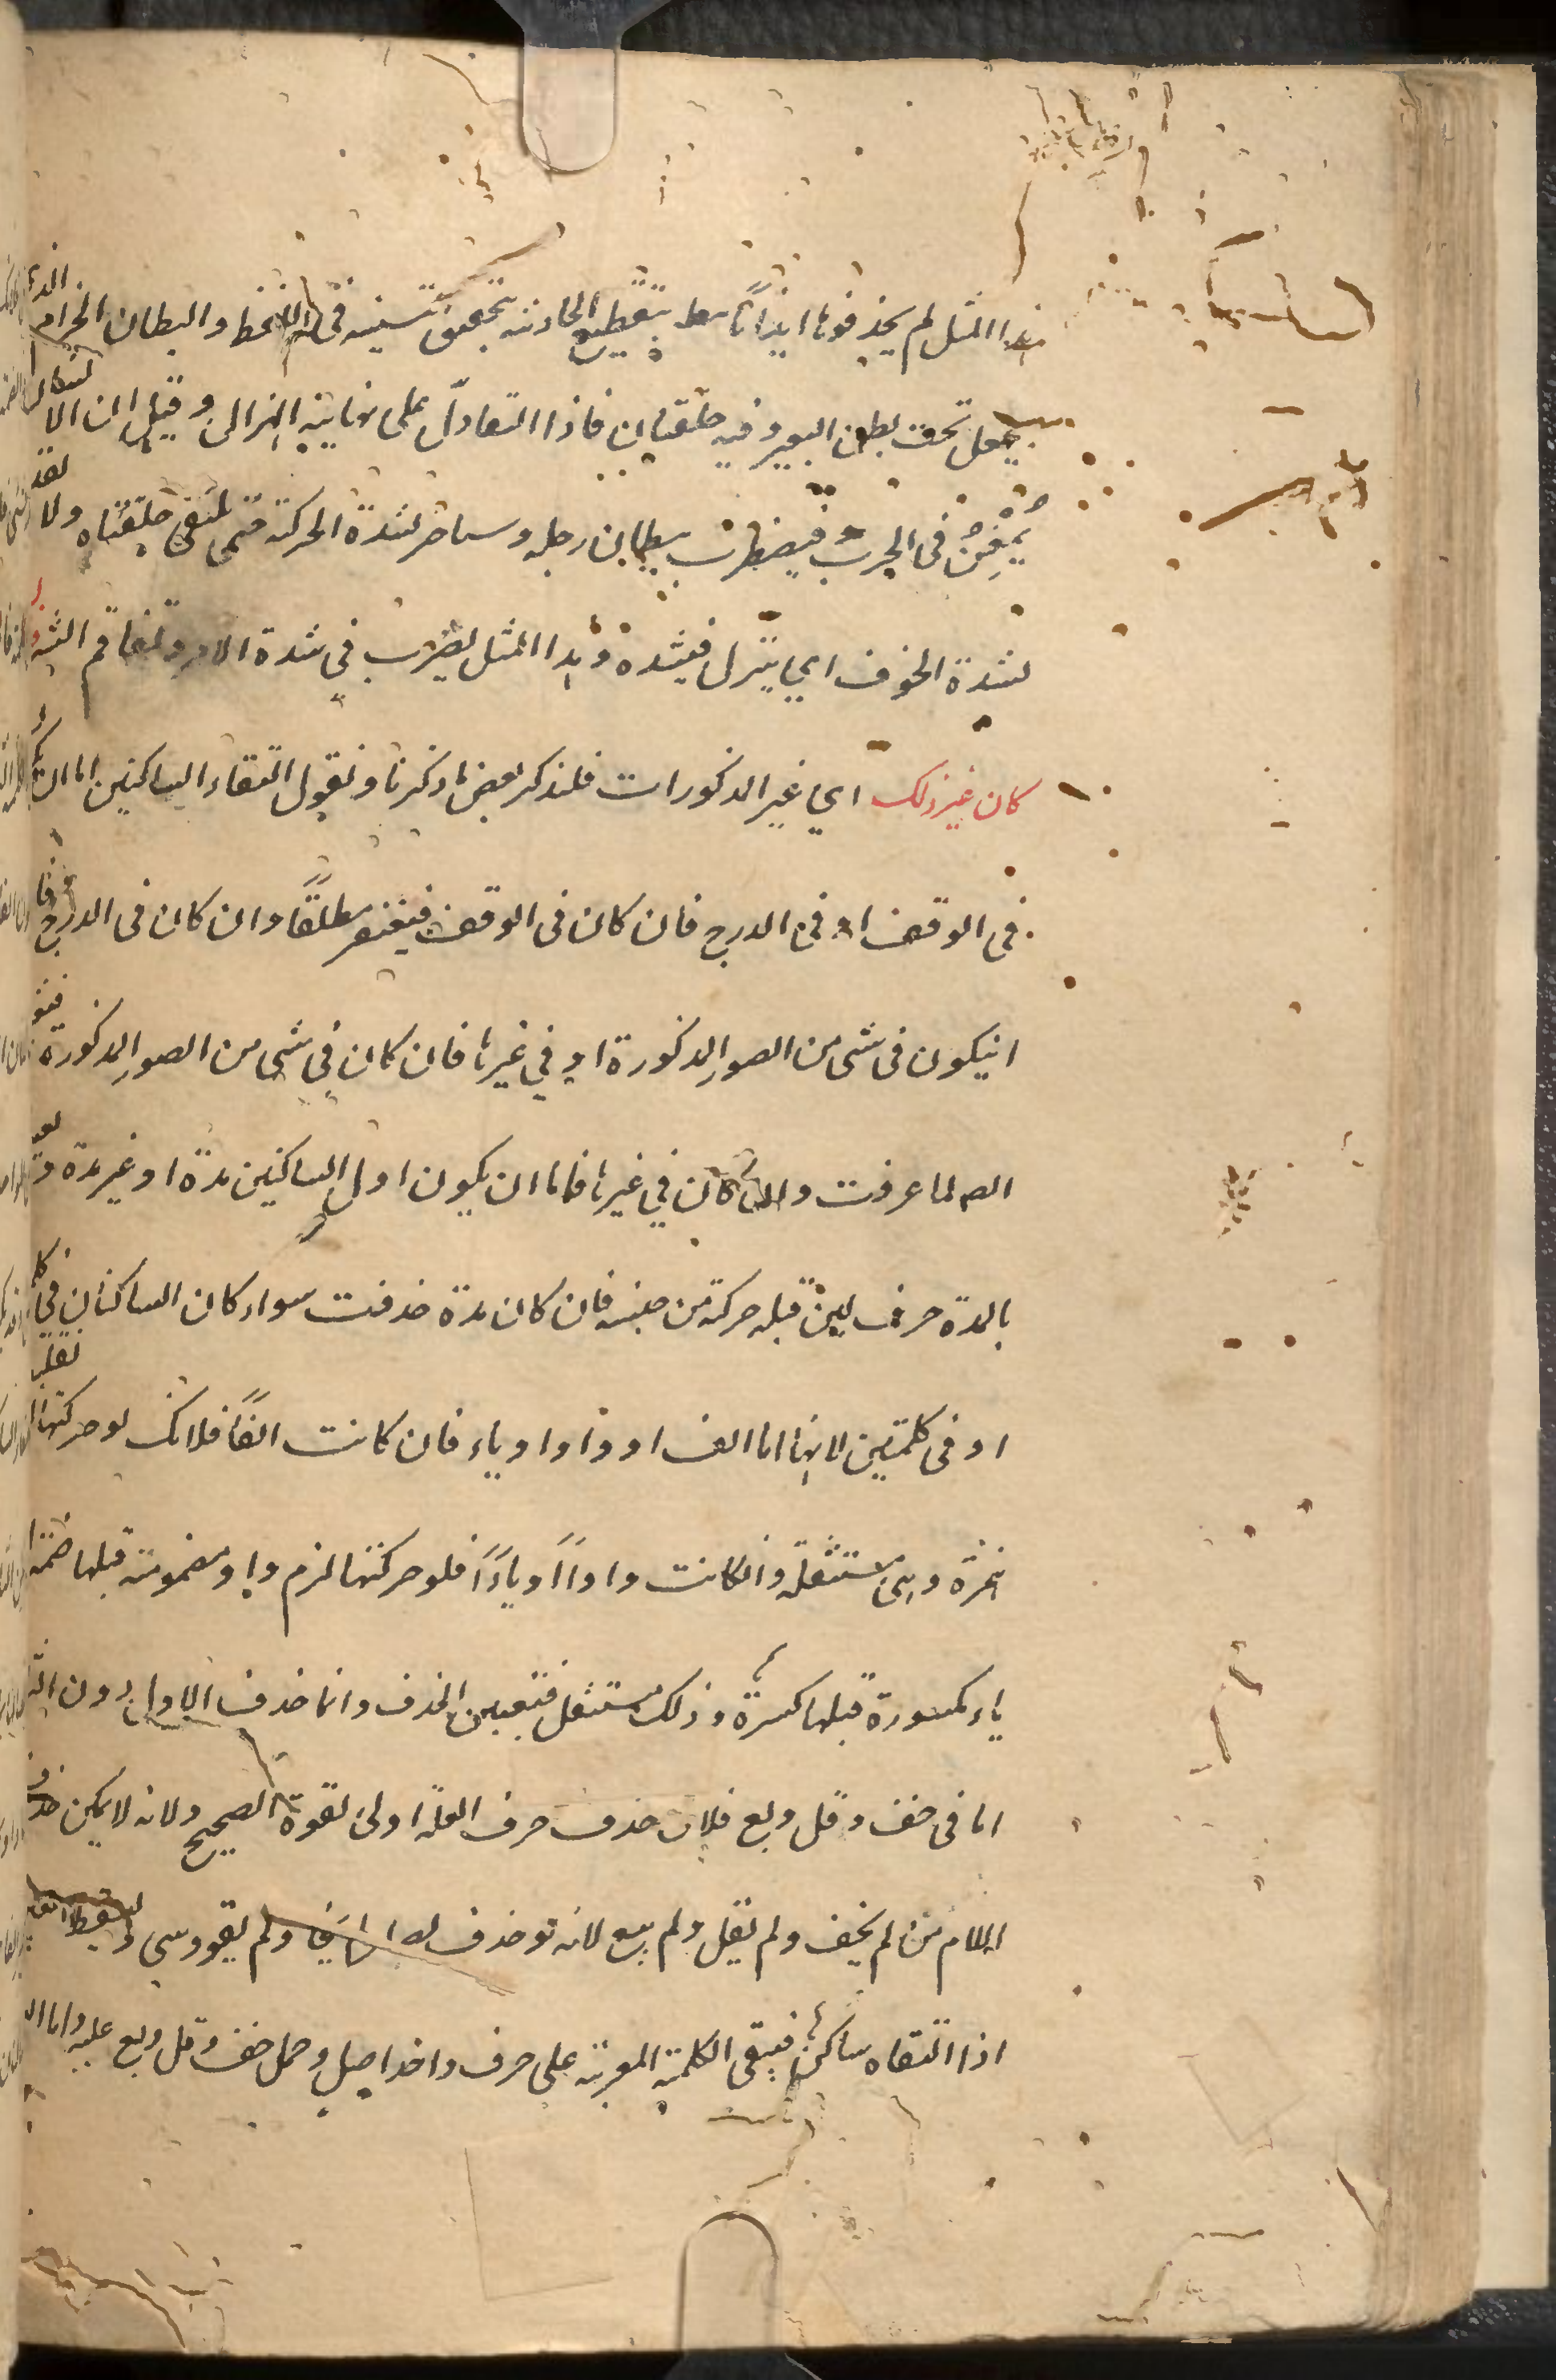 هذا المثل لم يحذفوها ايذانا بتفظيع الحادثة بتحقيق تثنيته في اللفظ والبطان الحزام الذى
يجعل تحت بطن البعير وفيه حلقتان فاذا التقا دل على نهاية الهزال وقيل ان الا
يُمْعِن فى الهرب فيضطرب بطان رحله لشدة الحركة حتى تلتقى حلقتاه ولا
لشدة الخوف اي ينزل فيشده وهذا المثل يضرب في شدة الامر وتفاقم الشر
كان غير ذلك اي غير المذكورات فلنذكر بعض ما ذكرنا ونقول التقاء الساكنين اما ان يكو
في الوقف او في الدرج فان كان فى الوقف فيغتفر مطلقًا وان كان فى الدرج فا
انيكون فى شى من الصور المذكورة او في غيرها فان كان في شى من الصور المذكورة
لما عرفت وان كان في غيرها فاما ان يكون اول الساكنين مدة او غير مدة
بالمدة حرف لين قبله حركة من جنسه فان كان مدة حذفت سواء كان الساكنان في
او فى كلمتين لانها اما الف او واو او ياء فان كانت الفًا فلانك لو حركتها
همزة وهى مستثقلة وانكانت واواً او ياءً فلو حركتها لزم واو مضمومة قبلها ضمة
ياء مكسورة قبلها كسرة وذلك مستثقل فتعين الحذف وانما حذف الاول دون
اما فى خف وقل وبع فلان حذف حرف العلة اولى لقوة الصحيح ولانه لا يمكن حذف
اللام من لم يخف ولم يقل ولم يبع لانه لو حذف
اذا التقاه ساكن فيبقى الكلمة المعربة على حرف واحد اصلي وحمل خف وقل وبع عليه واما